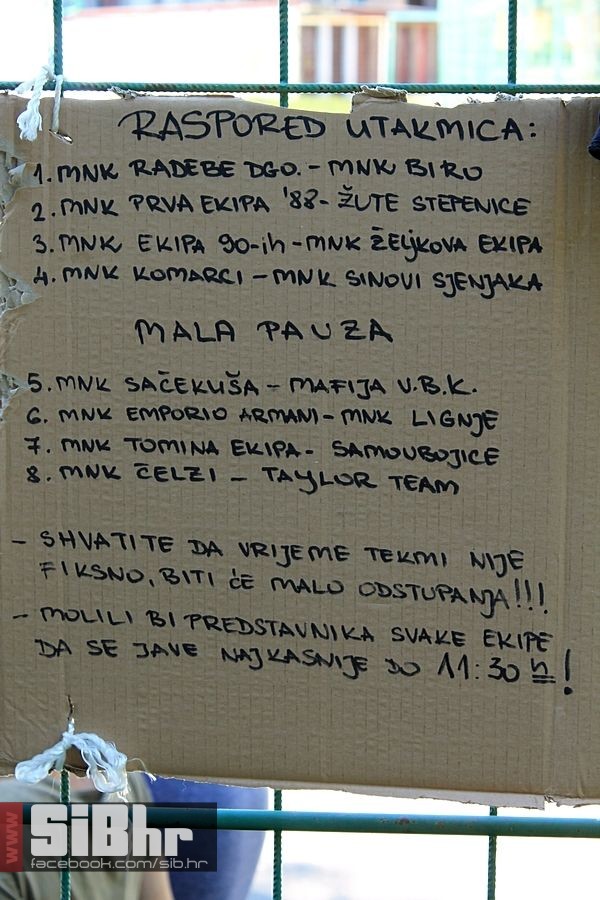 RASPORED UTAKMICA:
1. MNK RADEBE DGO. - MNK BIRO
2. MNK PRVA EKIPA '88 - ŽUTE STEPENICE
3. MNK EKIPA 90-ih - MNK ŽELJKOVA EKIPA
4. MNK KOMARCI - MNK SINOVI SJENJAKA
MALA PAUZA
5. MNK SAČEKUŠA - MAFIJA U.B.K.
6. MNK EMPORIO ARMANI - MNK LIGNJE
7. MNK TOMINA EKIPA - SAMOUBOJICE
8. MNK ČELZI - TAYLOR TEAM
- SHVATITE DA VRIJEME TEKMI NIJE
FIKSNO, BITI ĆE MALO ODSTUPANJA!!!
- MOLILI BI PREDSTAVNIKA SVAKE EKIPE
DA SE JAVE NAJKASNIJE DO 11:30 h!
www SiBhr
facebook.com/sib.hr